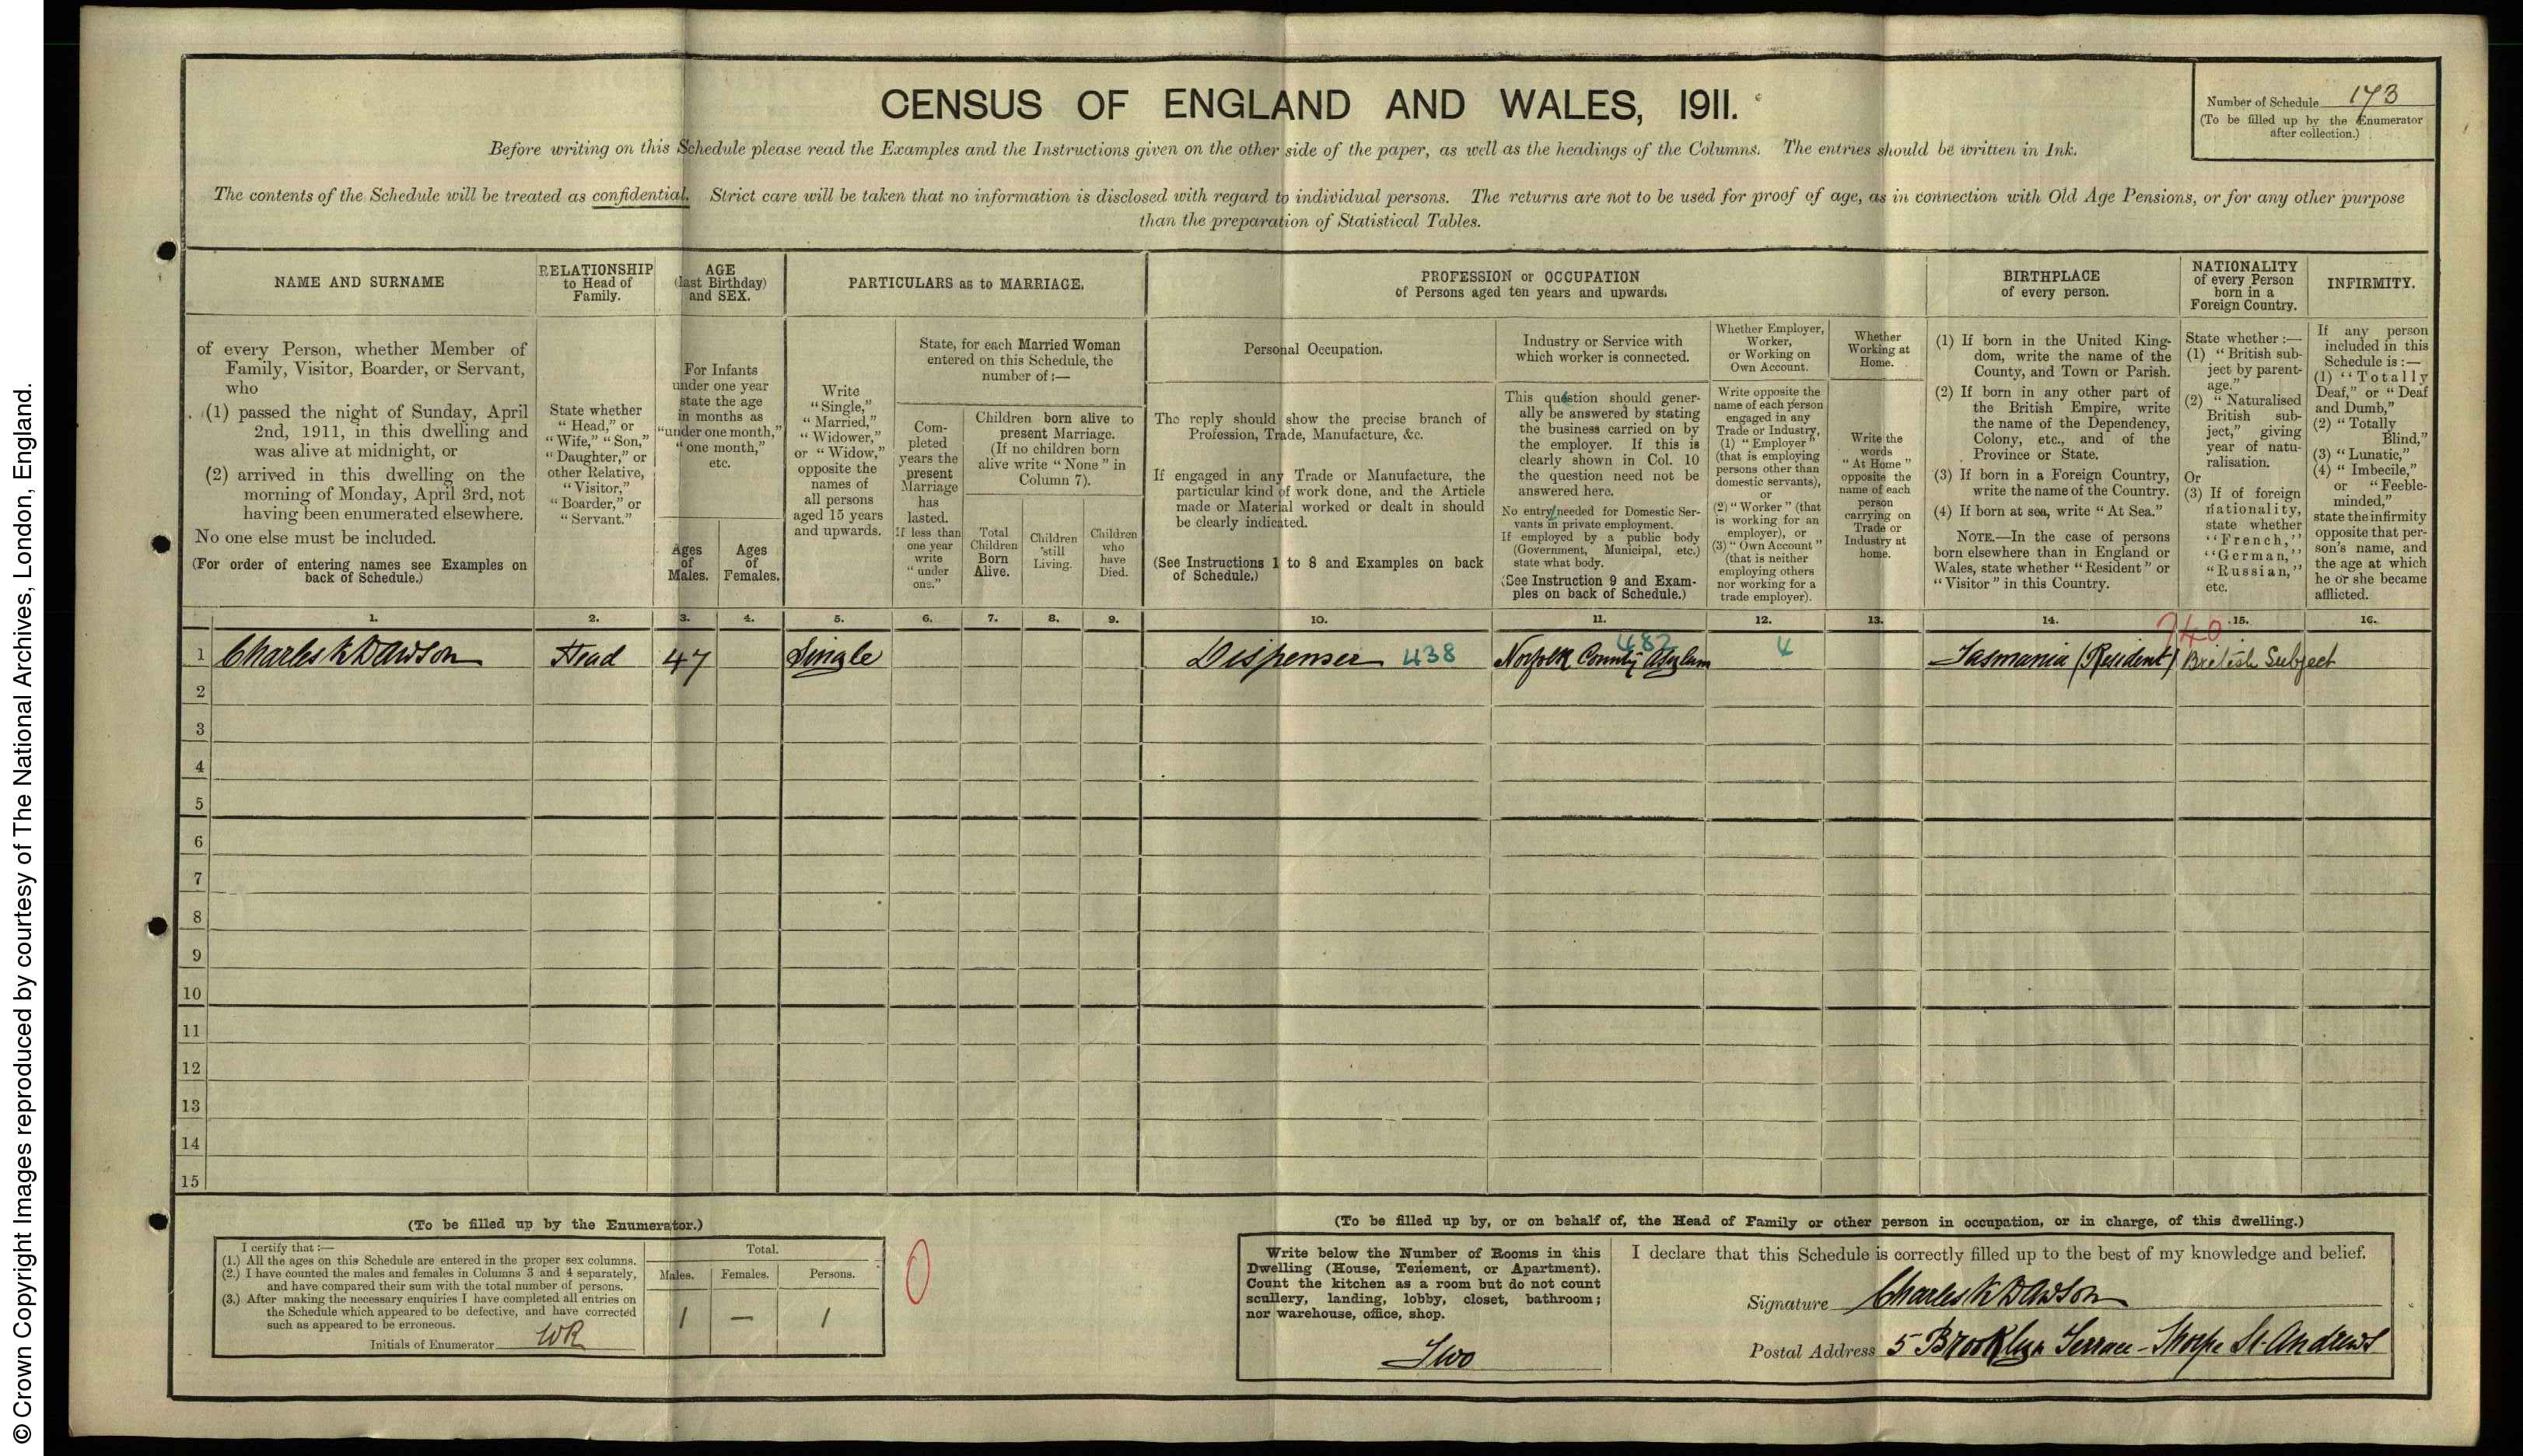 © Crown Copyright Images reproduced by courtesy of The National Archives, London, England.
CENSUS OF ENGLAND AND WALES, 1911.
Number of Schedule 173
(To be filled up by the Enumerator
after collection.)
Before writing on this Schedule please read the Examples and the Instructions given on the other side of the paper, as well as the headings of the Columns. The entries should be written in Ink.
The contents of the Schedule will be treated as confidential. Strict care will be taken that no information is disclosed with regard to individual persons. The returns are not to be used for proof of age, as in connection with Old Age Pensions, or for any other purpose
than the preparation of Statistical Tables.
NAME AND SURNAME
of every Person, whether Member of
Family, Visitor, Boarder, or Servant,
who
(1) passed the night of Sunday, April
2nd, 1911, in this dwelling and
was alive at midnight, or
(2) arrived in this dwelling on the
morning of Monday, April 3rd, not
having been enumerated elsewhere.
No one else must be included.
(For order of entering names see Examples on
back of Schedule.)
RELATIONSHIP
to Head of
Family.
State whether
"Head," or
"Wife," "Son,"
"Daughter," or
other Relative,
"Visitor,"
"Boarder," or
"Servant."
AGE
(last Birthday)
and SEX.
For Infants
under one year
state the age
in months as
"under one month,"
"one month,"
etc.
Ages
of
Males.
Ages
of
Females.
PARTICULARS as to MARRIAGE.
Write
"Single,"
"Married,"
"Widower,"
or "Widow,"
opposite the
names of
all persons
aged 15 years
and upwards.
State, for each Married Woman
entered on this Schedule, the
number of :—
Com-
pleted
years the
present
Marriage
has
lasted.
If less than
one year
write
"under
one."
Children born alive to
present Marriage.
(If no children born
alive write "None" in
Column 7).
Total
Children
Born
Alive.
Children
still
Living.
Children
who
have
Died.
PROFESSION or OCCUPATION
of Persons aged ten years and upwards.
Personal Occupation.
The reply should show the precise branch of
Profession, Trade, Manufacture, &c.
If engaged in any Trade or Manufacture, the
particular kind of work done, and the Article
made or Material worked or dealt in should
be clearly indicated.
(See Instructions 1 to 8 and Examples on back
of Schedule.)
Industry or Service with
which worker is connected.
This question should gener-
ally be answered by stating
the business carried on by
the employer. If this is
clearly shown in Col. 10
the question need not be
answered here.
No entry needed for Domestic Ser-
vants in private employment.
If employed by a public body
(Government, Municipal, etc.)
state what body.
(See Instruction 9 and Exam-
ples on back of Schedule.)
Whether Employer,
Worker,
or Working on
Own Account.
Write opposite the
name of each person
engaged in any
Trade or Industry,
(1) "Employer"
(that is employing
persons other than
domestic servants),
or
(2) "Worker" (that
is working for an
employer), or
(3) "Own Account"
(that is neither
employing others
nor working for a
trade employer).
Whether
Working at
Home.
Write the
words
"At Home"
opposite the
name of each
person
carrying on
Trade or
Industry at
home.
BIRTHPLACE
of every person.
(1) If born in the United King-
dom, write the name of the
County, and Town or Parish.
(2) If born in any other part of
the British Empire, write
the name of the Dependency,
Colony, etc., and of the
Province or State.
(3) If born in a Foreign Country,
write the name of the Country.
(4) If born at sea, write "At Sea."
NOTE.—In the case of persons
born elsewhere than in England or
Wales, state whether "Resident" or
"Visitor" in this Country.
NATIONALITY
of every Person
born in a
Foreign Country.
State whether :—
(1) "British sub-
ject by parent-
age."
(2) "Naturalised
British sub-
ject," giving
year of natu-
ralisation.
Or
(3) If of foreign
nationality,
state whether
"French,"
"German,"
"Russian,"
etc.
INFIRMITY.
If any person
included in this
Schedule is :—
(1) "Totally
Deaf," or "Deaf
and Dumb,"
(2) "Totally
Blind,"
(3) "Lunatic,"
(4) "Imbecile,"
or "Feeble-
minded,"
state the infirmity
opposite that per-
son's name, and
the age at which
he or she became
afflicted.
1. 2. 3. 4. 5. 6. 7. 8. 9. 10. 11. 12. 13. 14. 15. 16.
940
482
1 Charles K Dawson Head 47 Single Dispenser 438 Norfolk County Asylum 4 Tasmania (Resident) British Subject
2
3
4
5
6
7
8
9
10
11
12
13
14
15
(To be filled up by the Enumerator.)
I certify that :—
(1.) All the ages on this Schedule are entered in the proper sex columns.
(2.) I have counted the males and females in Columns 3 and 4 separately,
and have compared their sum with the total number of persons.
(3.) After making the necessary enquiries I have completed all entries on
the Schedule which appeared to be defective, and have corrected
such as appeared to be erroneous.
Initials of Enumerator WR
Total.
Males. Females. Persons.
1 — 1
0
(To be filled up by, or on behalf of, the Head of Family or other person in occupation, or in charge, of this dwelling.)
Write below the Number of Rooms in this
Dwelling (House, Tenement, or Apartment).
Count the kitchen as a room but do not count
scullery, landing, lobby, closet, bathroom;
nor warehouse, office, shop.
Two
I declare that this Schedule is correctly filled up to the best of my knowledge and belief.
Signature Charles K Dawson
Postal Address 5 Brooklyn Terrace - Thorpe St. Andrews